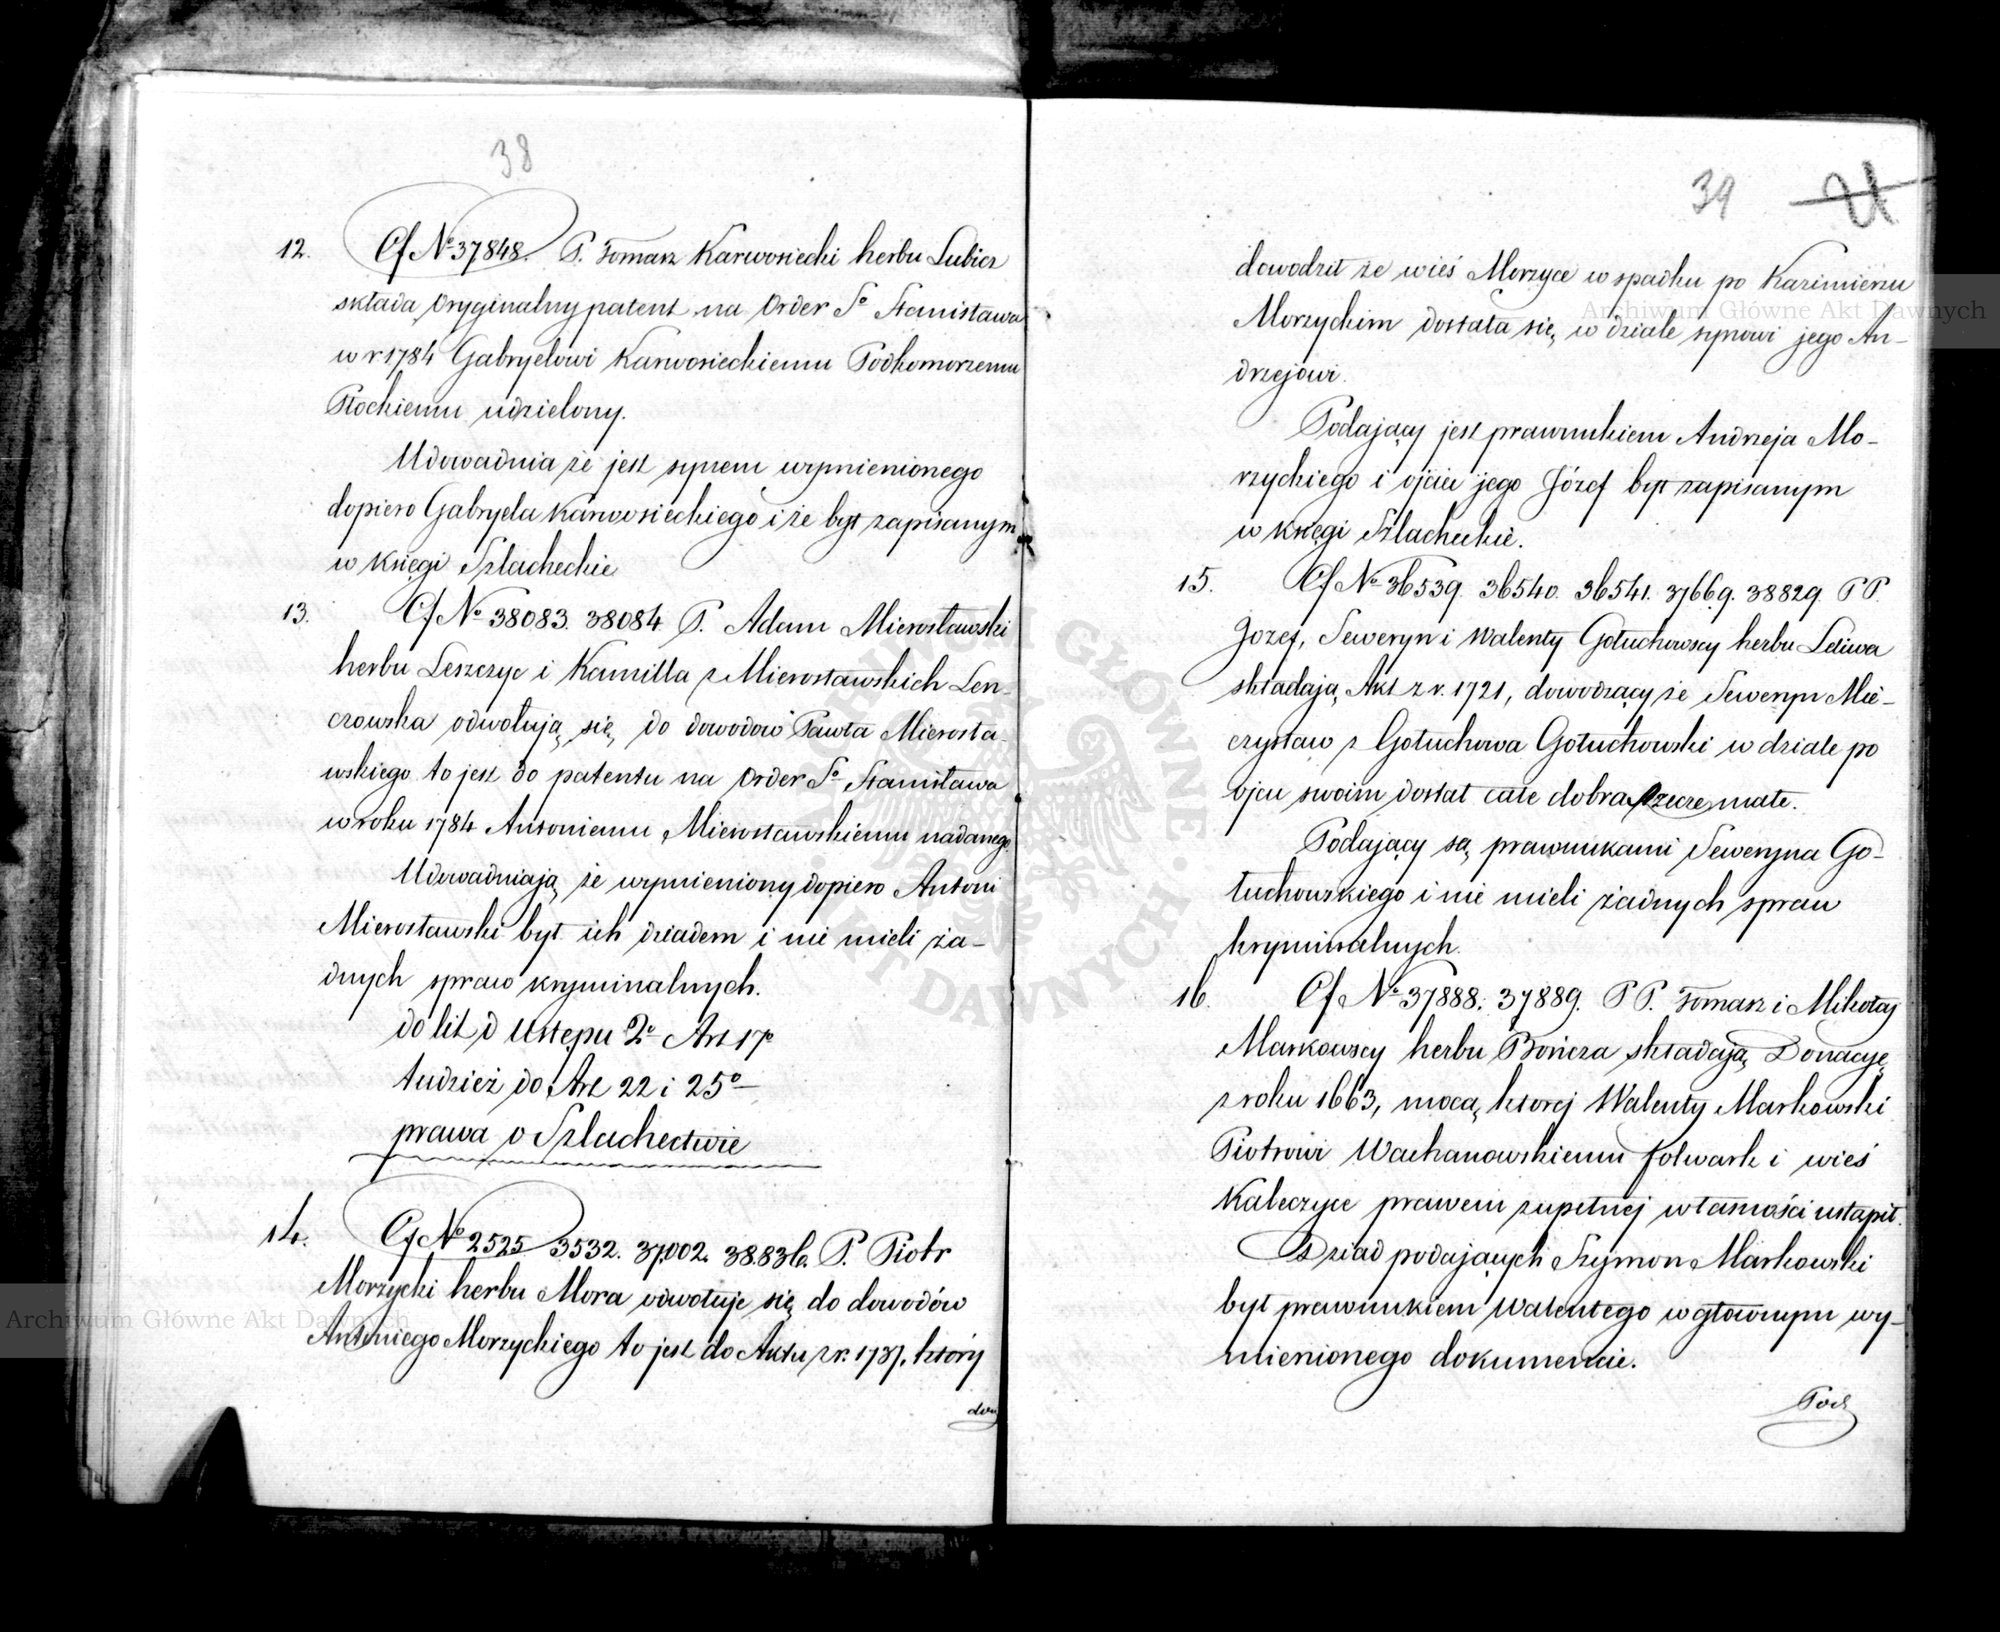 38
12. Cf № 37848. P. Tomasz Karwosiecki herbu Lubicz
składa Oryginalny patent na Order Sº Stanisława
w r 1784 Gabryelowi Karwosieckiemu Podkomorzemu
Płockiemu udzielony.
Udowadnia że jest synem wymienionego
dopiero Gabryela Karwosieckiego i że był zapisanym
w księgi Szlacheckie
13. Cf № 38083. 38084. P. Adam Mierosławski
herbu Leszczyc i Kamilla z Mierosławskich Len-
czowska odwołują się, do dowodów Pawła Mierosła-
wskiego to jest do patentu na Order Sº Stanisława
w roku 1784 Antoniemu Mierosławskiemu nadanego
Udowadniają, że wymieniony dopiero Antoni
Mierosławski był ich dziadem i nie mieli ża-
dnych spraw kryminalnych.
do lit d Ustępu 2º Art 17º
tudzież do Art 22 i 25º
prawa o Szlachectwie
14. Cf № 2525 3532. 37002. 38836. P. Piotr
Morzycki herbu Mora odwołuje się do dowodów
Antoniego Morzyckiego to jest do Aktu z r. 1737, który
dow
39 21
dowodził że wieś Morzyce w spadku po Kazimierzu
Morzyckim dostała się, w dziale synowi jego An-
drzejowi.
Podający jest prawnukiem Andrzeja Mo-
rzyckiego i ojciec jego Józef był zapisanym
w księgi Szlacheckie.
15. Cf № 36539. 36540. 36541. 37669. 38829. P P.
Jozef, Seweryn i Walenty Gołuchowscy herbu Leliwa
składają, Akt z r. 1721, dowodzący że Seweryn Mie-
czysław z Gołuchowa Gołuchowski w dziale po
ojcu swoim dostał całe dobra
Podający są, prawnukami Seweryna Go-
łuchowskiego i nie mieli żadnych spraw
kryminalnych.
16. Cf № 37888. 37889. P P. Tomasz i Mikołaj
Markowscy herbu Bończa składają, Donacyę,
z roku 1663, mocą, ktorej Walenty Markowski
Piotrowi Wachanowskiemu folwark i wieś
Kaleczyce prawem zupełnej własności ustąpił.
Dziad podających Szymon Markowski
był prawnukiem Walentego w głownym wy-
mienionego dokumencie.
Pod
Archiwum Główne Akt Dawnych
Archiwum Główne Akt Dawnych
ARCHIWUM GŁÓWNE AKT DAWNYCH